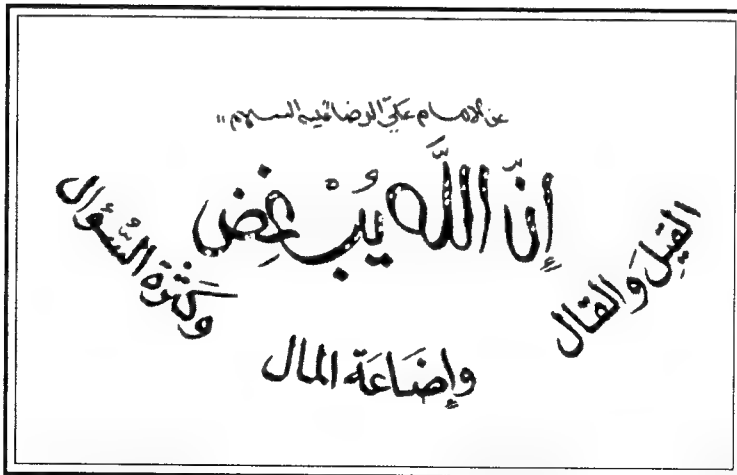 عن الامام علي الرضا عليه السلام "
إِنَّ اللَّه يُبْغِض
القِيلَ وَالقال
وإضَاعَة المال
وَكَثْرَة السُّؤال